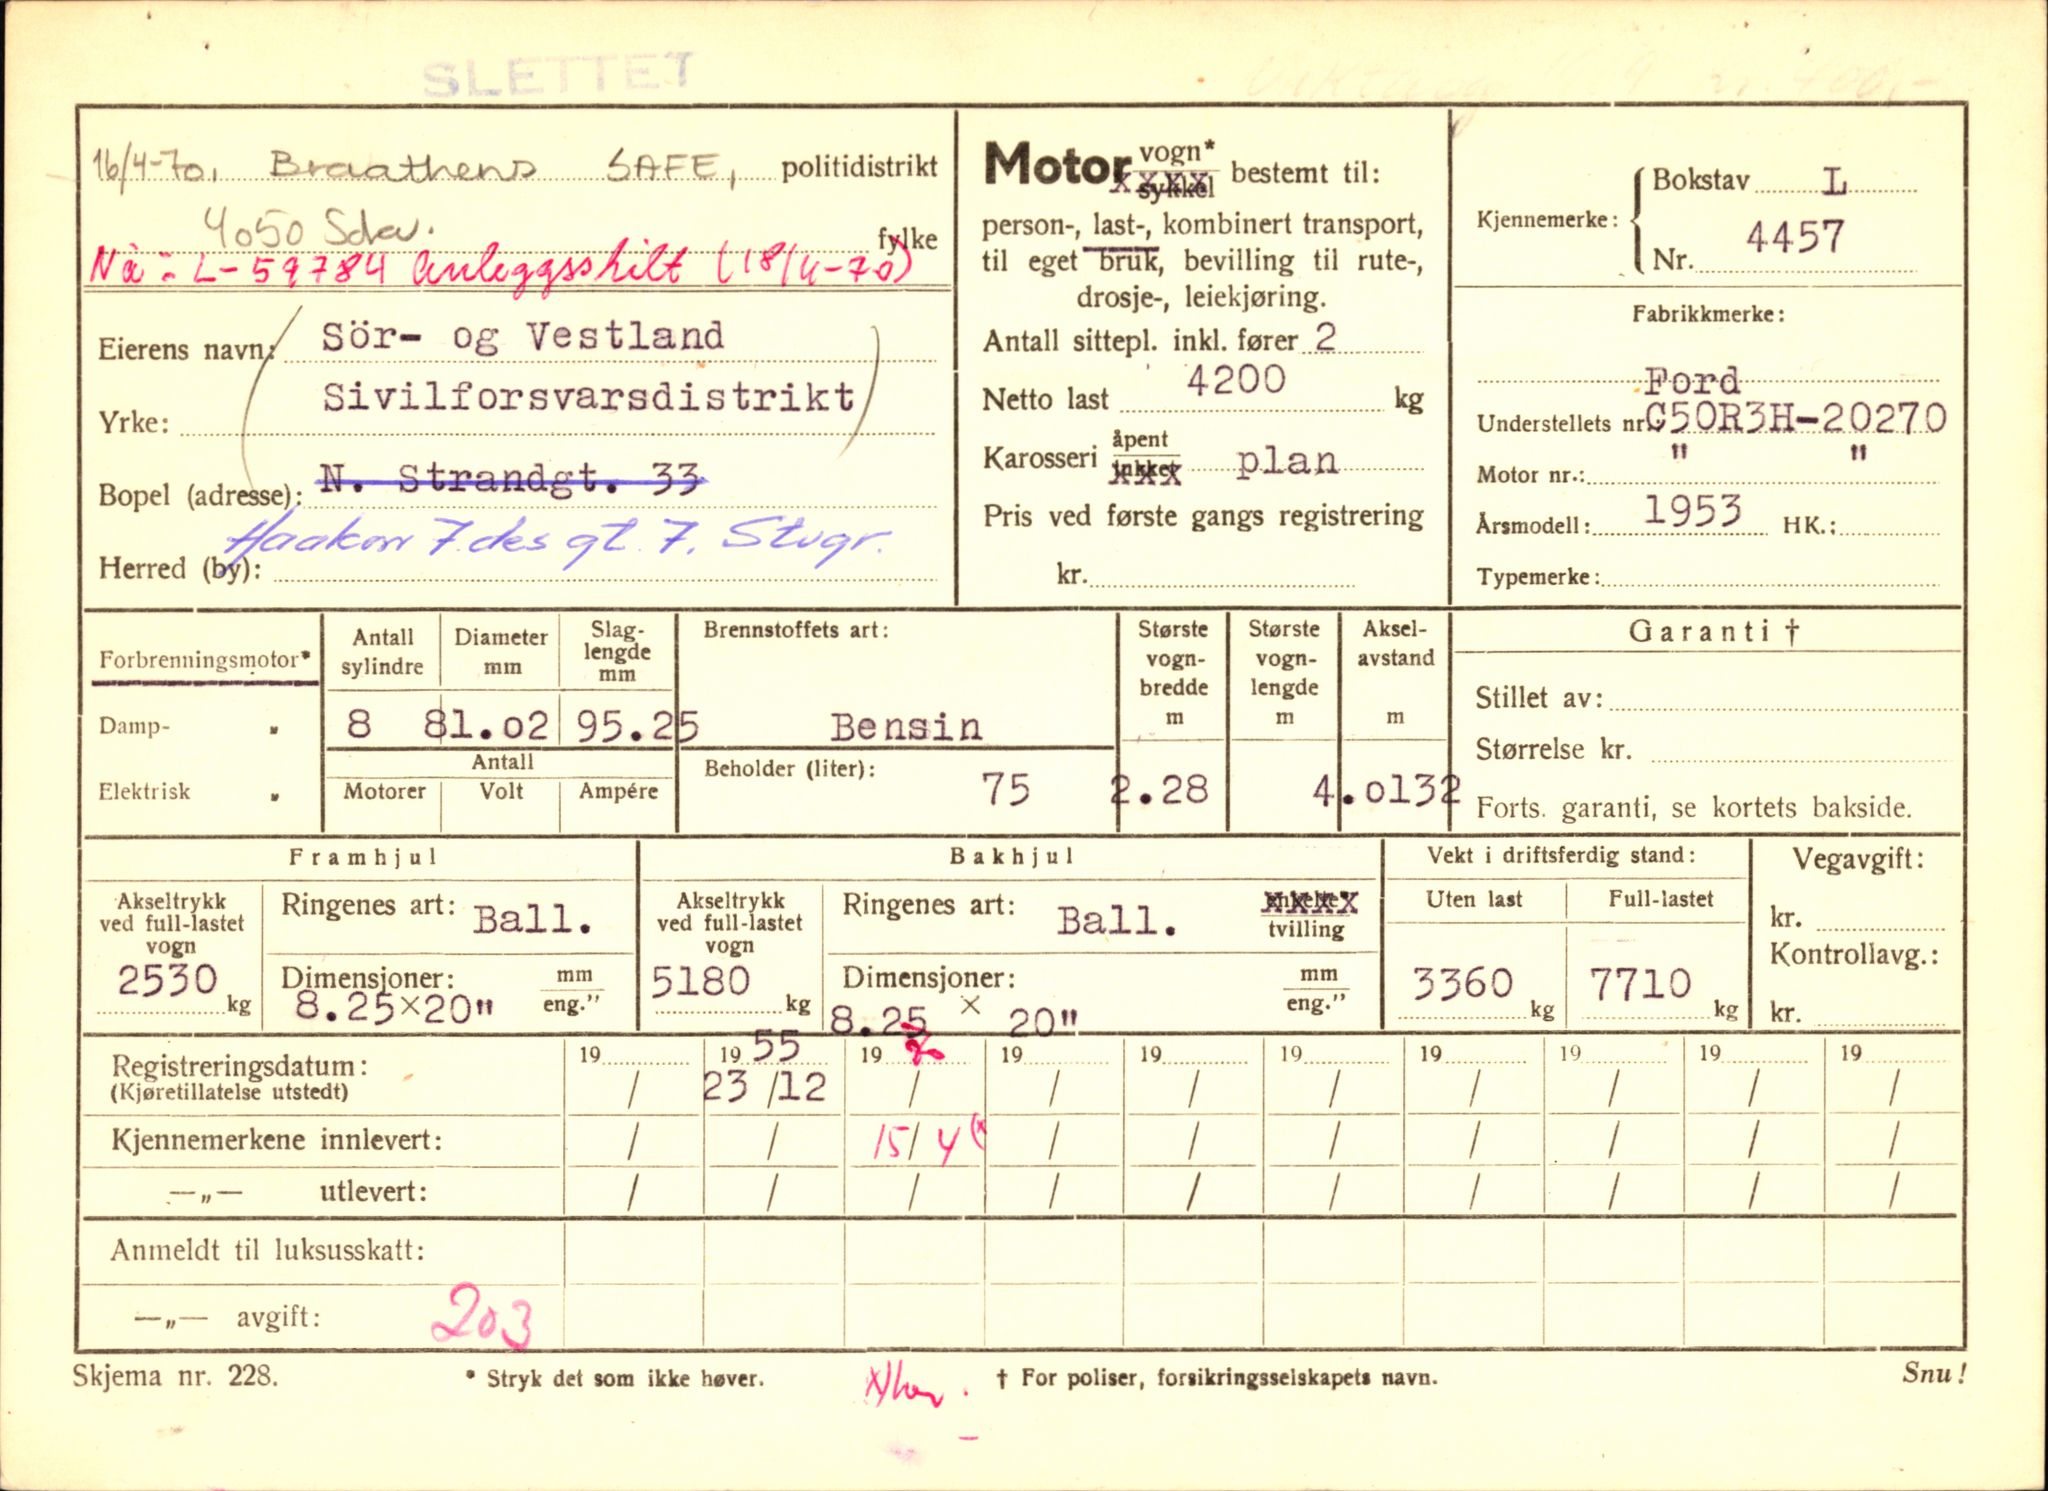 SLETTET
16/4-70, Braathens SAFE, politidistrikt
4050 Sola. fylke
Nå: L-59784 Anleggsskilt (18/4-70)
Eierens navn: Sör- og Vestland
Sivilforsvarsdistrikt
Yrke:
Bopel (adresse): N. Strandgt. 33
Haakon 7.des gt. 7, Stvgr.
Herred (by):
Motor vogn* sykkel bestemt til:
person-, last-, kombinert transport,
til eget bruk, bevilling til rute-,
drosje-, leiekjøring.
Antall sittepl. inkl. fører 2
Netto last 4200 kg
Karosseri åpent lukket plan
Pris ved første gangs registrering
kr.
Kjennemerke: Bokstav L
Nr. 4457
Fabrikkmerke:
Ford
Understellets nr. C50R3H-20270
Motor nr.: " "
Årsmodell: 1953 HK.:
Typemerke:
Forbrenningsmotor*
Damp- "
Elektrisk "
Antall sylindre Diameter mm Slag-lengde mm
8 81.02 95.25
Antall
Motorer Volt Ampére
Brennstoffets art:
Bensin
Beholder (liter): 75
Største vogn-bredde m
2.28
Største vogn-lengde m
Aksel-avstand m
4.0132
Garanti †
Stillet av:
Størrelse kr.
Forts. garanti, se kortets bakside.
Framhjul
Akseltrykk ved full-lastet vogn
2530 kg
Ringenes art: Ball.
Dimensjoner: mm eng."
8.25×20"
Bakhjul
Akseltrykk ved full-lastet vogn
5180 kg
Ringenes art: Ball. enkelte* tvilling
Dimensjoner: mm eng."
8.25 × 20"
Vekt i driftsferdig stand:
Uten last Full-lastet
3360 kg 7710 kg
Vegavgift:
kr.
Kontrollavg.:
kr.
Registreringsdatum: 19 1955 19 70 19 19 19 19 19 19 19
(Kjøretillatelse utstedt) / 23/12 / / / / / / / /
Kjennemerkene innlevert: / / 15/4 (x / / / / / / /
—„— utlevert: / / / / / / / / / /
Anmeldt til luksusskatt:
—„— avgift: 203
Skjema nr. 228. * Stryk det som ikke høver. † For poliser, forsikringsselskapets navn. Snu!